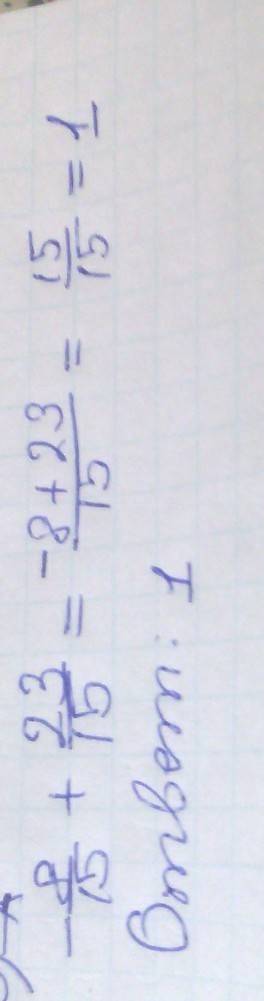 -8/15 + 23/15 = -8+23/15 = 15/15 = 1
Ответ: 1